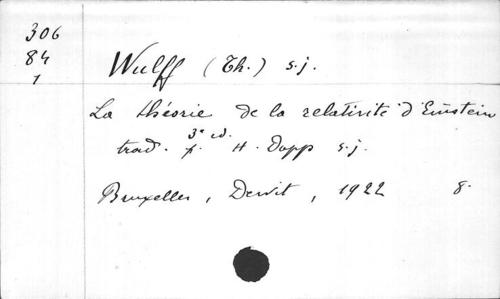 306
84
1
Wulff (Th.) s.j.
La théorie de la relativité d'Einstein
3e éd.
trad. p. H. Dopp s.j.
Bruxelles, Dewit, 1922 8.